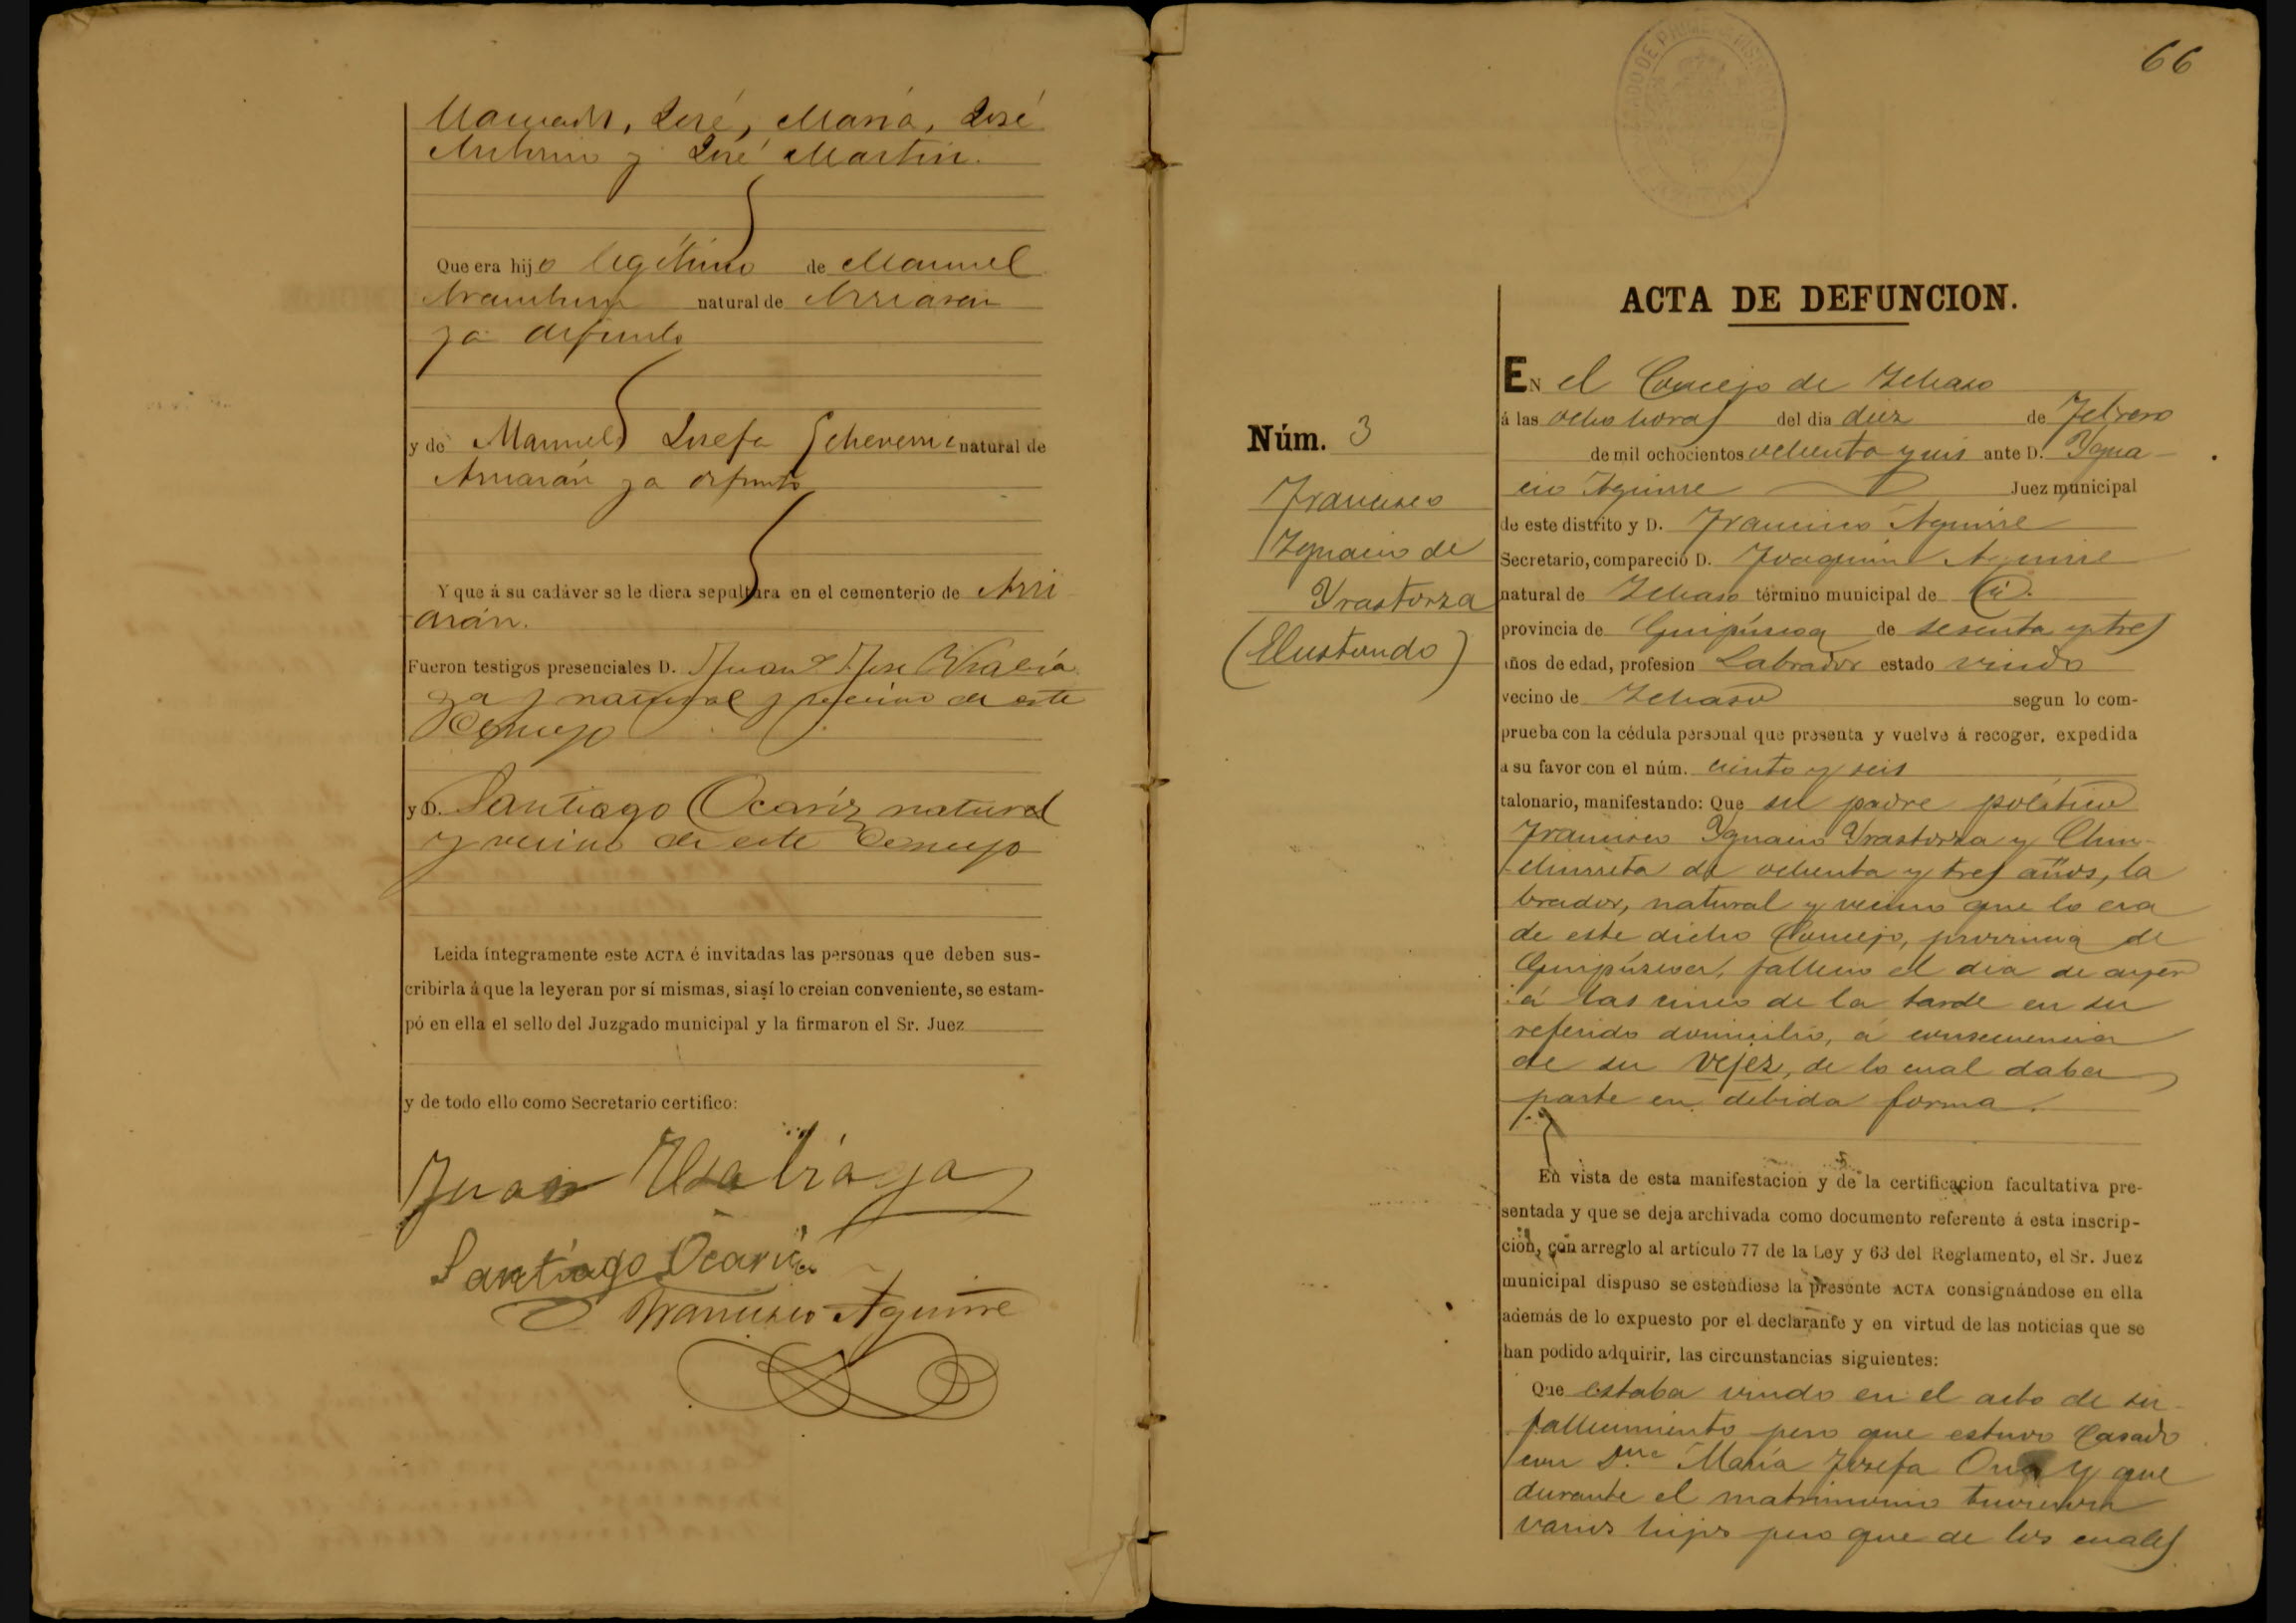 José, María, José
Antonio y José Martin.
Que era hijo legítimo de Manuel
natural de Arriaran
ya difunto
y de Manuela Josefa Echeverria natural de
Arriarán ya difunta
Y que á su cadáver se le diera sepultura en el cementerio de Arri
arán.
Fueron testigos presenciales D. Juan José
natural y vecino de este
Concejo
y D. Santiago Ocariz natural
y vecino de este Concejo
Leida íntegramente este ACTA é invitadas las personas que deben sus-
cribirla á que la leyeran por sí mismas, si así lo creian conveniente, se estam-
pó en ella el sello del Juzgado municipal y la firmaron el Sr. Juez
y de todo ello como Secretario certifico:
Juan
Santiago Ocariz
Francisco Aguirre
66
ACTA DE DEFUNCION.
Núm. 3
Francisco
Ygnacio de
Yrastorza
(Mustundo)
EN el Concejo de Ychaso
á las ocho horas del dia diez de Febrero
de mil ochocientos ochenta y seis ante D. Ygna-
cio Aguirre Juez municipal
de este distrito y D. Francisco Aguirre
Secretario, compareció D. Joaquin Aguirre
natural de Ychaso término municipal de id.
provincia de Guipúzcoa de sesenta y tres
años de edad, profesion Labrador estado viudo
vecino de Ychaso segun lo com-
prueba con la cédula personal que presenta y vuelve á recoger, expedida
a su favor con el núm. ciento y seis
talonario, manifestando: Que su padre político
Francisco Ygnacio Yrastorza y Chin-
churreta de ochenta y tres años, la
brador, natural y vecino que lo era
de este dicho Concejo, provincia de
Guipúzcoa, falleció el dia de ayer
á las cinco de la tarde en su
referido domicilio, á consecuencia
de su vejez, de lo cual daba
parte en debida forma.
En vista de esta manifestacion y de la certificacion facultativa pre-
sentada y que se deja archivada como documento referente á esta inscrip-
cion, con arreglo al artículo 77 de la Ley y 63 del Reglamento, el Sr. Juez
municipal dispuso se estendiese la presente ACTA consignándose en ella
además de lo expuesto por el declarante y en virtud de las noticias que se
han podido adquirir, las circunstancias siguientes:
Que estaba viudo en el acto de su
fallecimiento pero que estuvo Casado
con Dña María Josefa y que
durante el matrimonio tuvieron
varios hijos pero que de los cuales